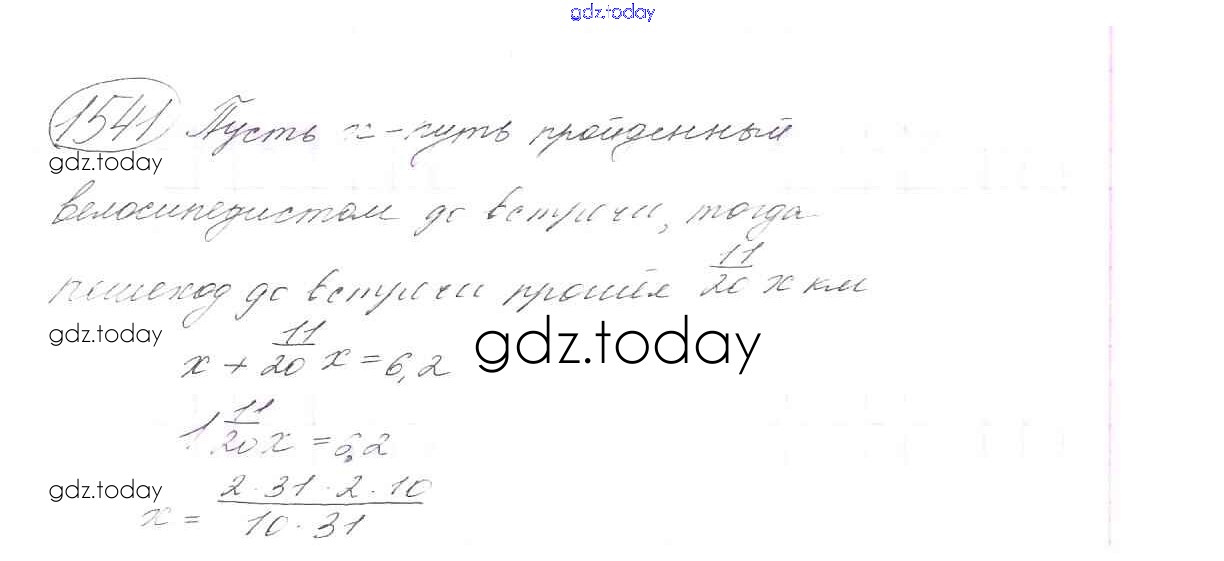 gdz.today
1541 Пусть x - путь пройденный
gdz.today
велосипедистом до встречи, тогда
пешеход до встречи прошёл 11/20 x км
gdz.today
x + 11/20 x = 6,2
gdz.today
1 11/20 x = 6,2
gdz.today
x = 2·31·2·10 / 10·31